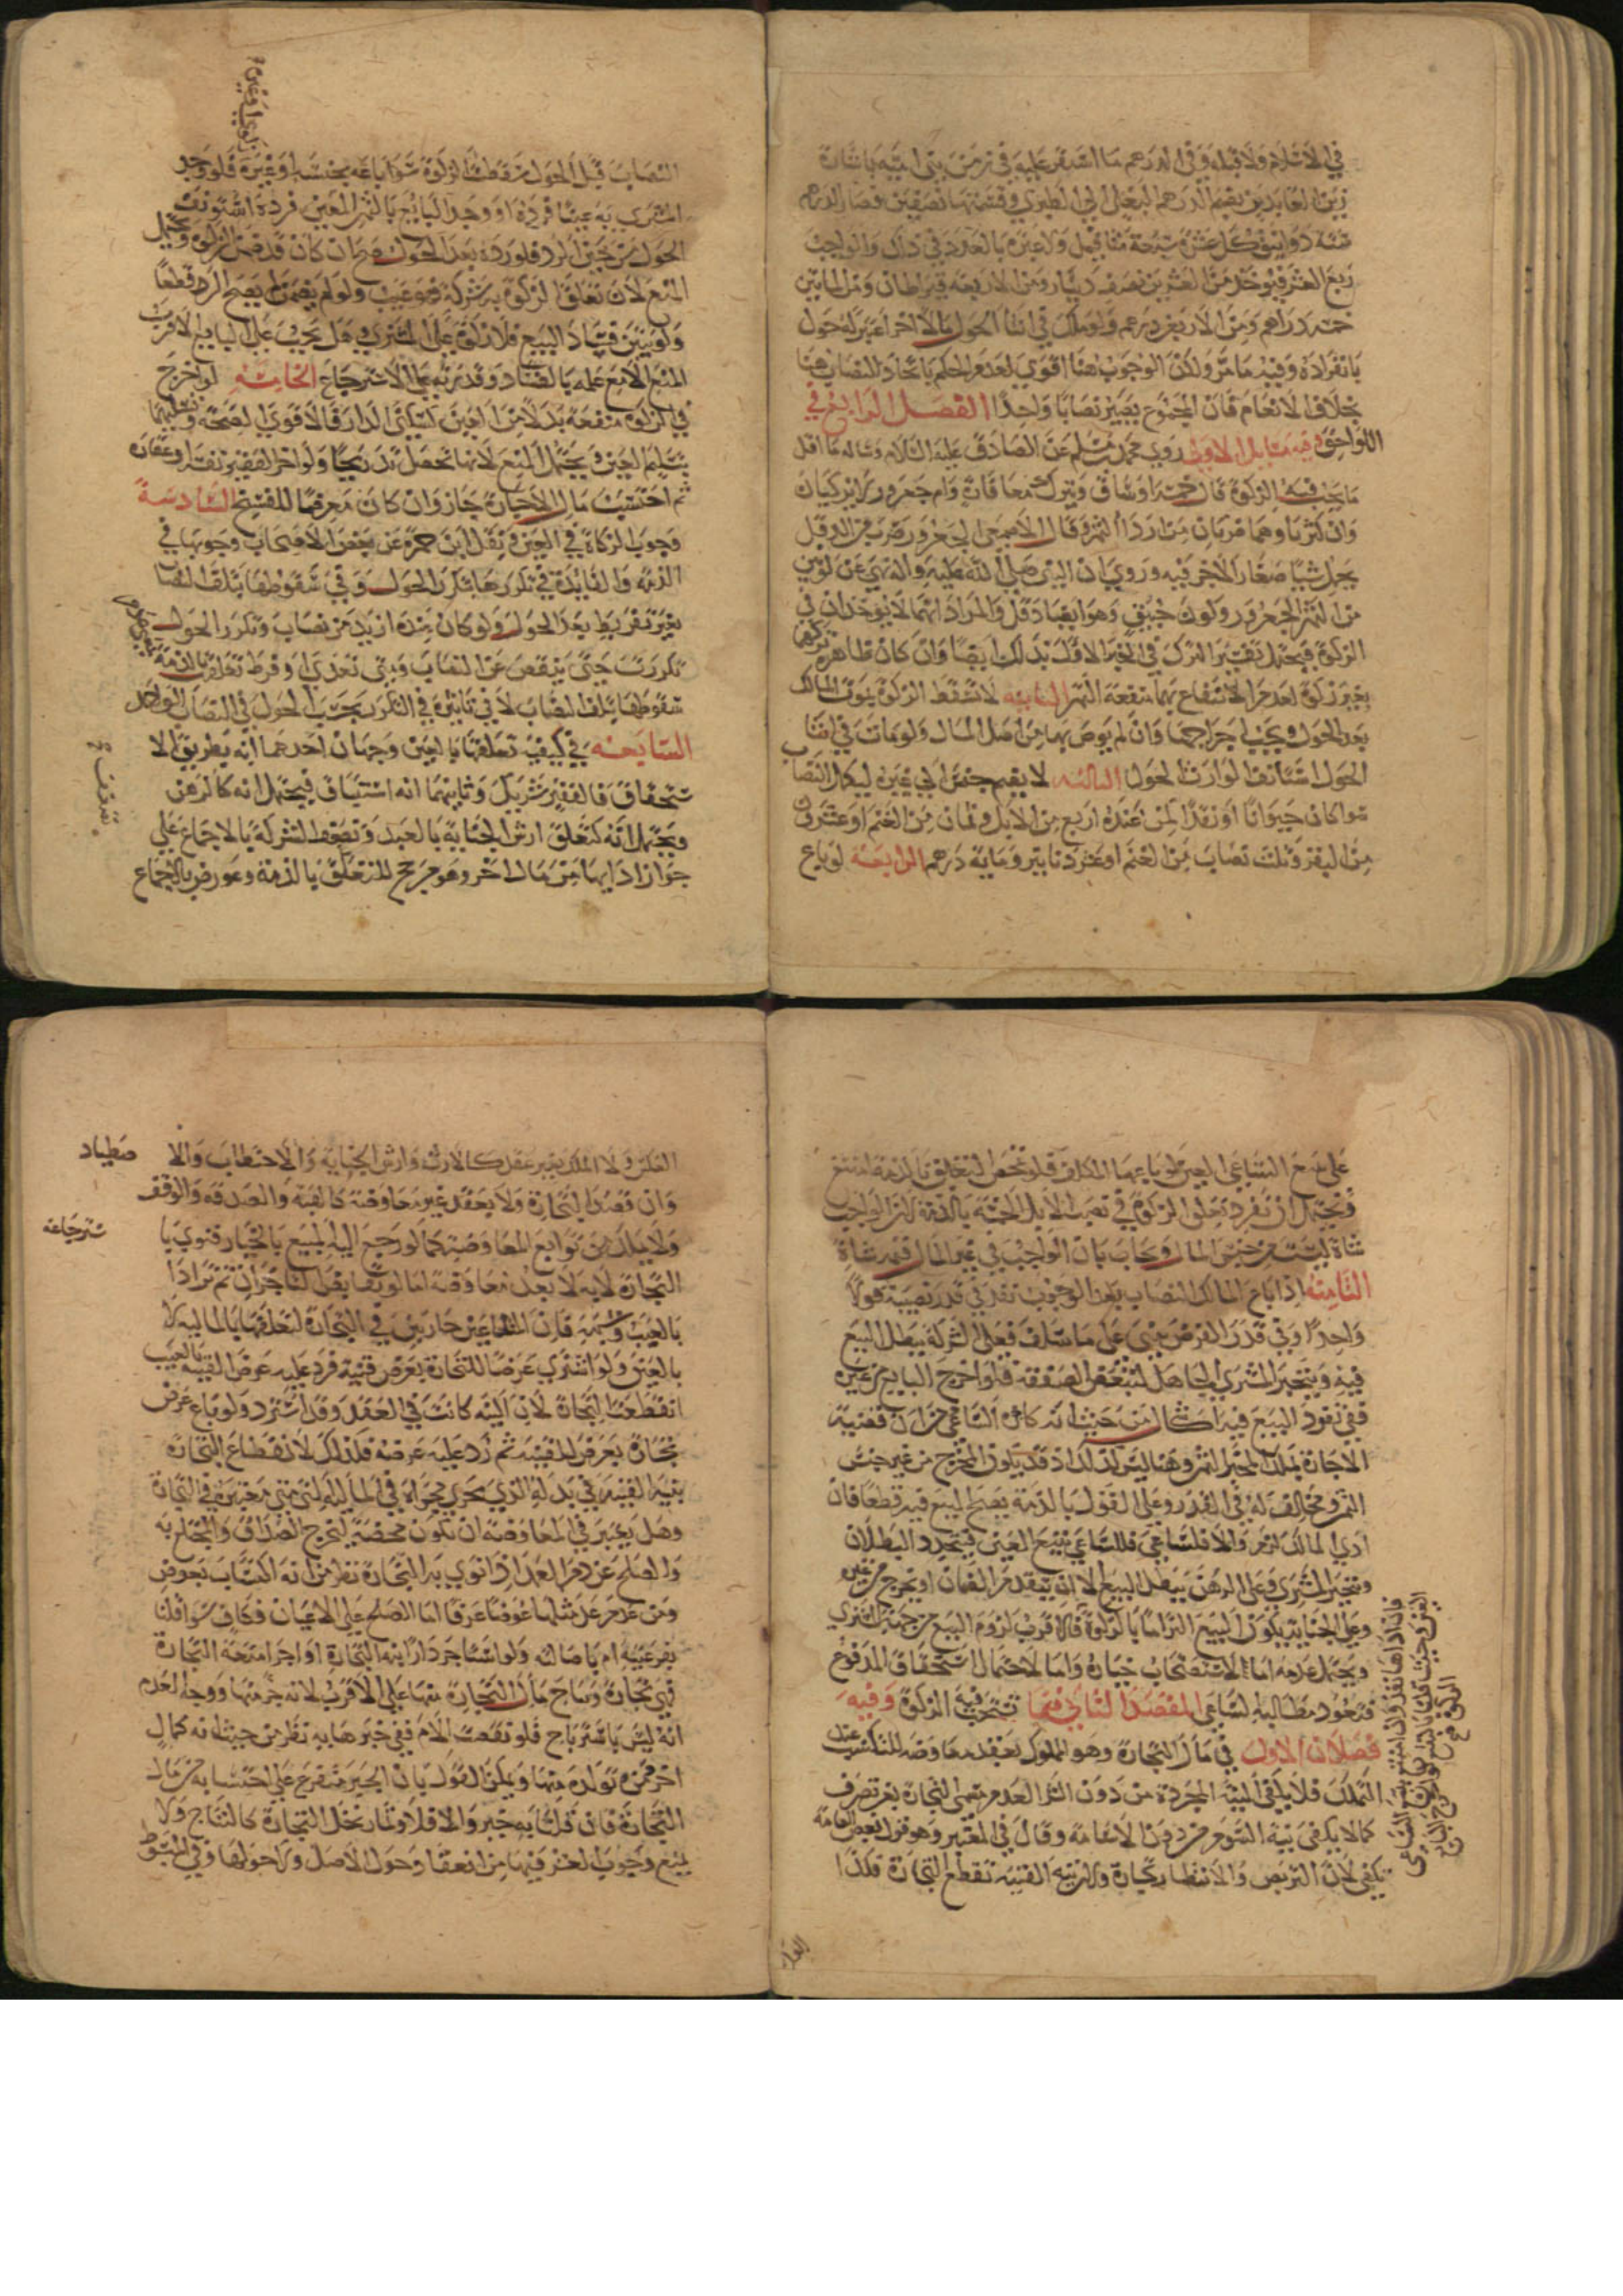 في الاسلام ولا قبله وفي الدرهم ما استقر عليه في زمن بني امية باشارة
زين العابدين بضم الدرهم البغلي الى الطبري وقسمتهما نصفين فصار الدرهم
ستة دوانيق كل عشرة سبعة مثاقيل ولا عبرة بالعدد في ذلك والواجب
ربع العشر فيؤخذ من العشرين نصف دينار ومن الاربعة قيراطان ومن المايتين
خمسة دراهم ومن الاربعين درهم ولو ملك في اثنا الحول مالا اخر اعتبر له حول
بانفراده وفيه ما مر ولكن الوجوب هنا اقوى لعدم الحكم باتحاد النصاب هنا
بخلاف الانعام فان المجموع يصير نصابا واحدا الفصل الرابع في
اللواحق وفيه مسايل الاولى روى محمد بن مسلم عن الصادق عليه السلام وساله ما اقل
ما يجب فيه الزكوة قال خمسة اوساق ويترك معافارة وام جعرور لا يزكيان
وان كثرتا وهما ضربان من اردا التمر وقال الاصمعي الجعرور ضرب من الدقل
يحمل شيئا صغارا لا خير فيه وروي ان النبي صلى الله عليه واله نهى عن لونين
من التمر الجعرور ولون حبيق وهو ايضا دقل والمراد انهما لا يؤخذان في
الزكوة فيحتمل تفسير الترك في الخبر الاول بذلك ايضا وان كان ظاهره تركهما
بغير زكوة لعدم الانتفاع بهما منفعة التمر الثانية لا تسقط الزكوة بموت المالك
بعد الحول ويجب اخراجها وان لم يوص بها من اصل المال ولو مات في اثنا
الحول استانف الوارث الحول الثالثة لا يضم جنس الى غيره ليكمل النصاب
سوا كان حيوانا او نقدا كمن عنده اربع من الابل وثمان من الغنم او عشرون
من البقر وثلث نصاب من الغنم او عشرة دنانير ومائة درهم الرابعة لو باع
النصاب قبل الحول سقطت الزكوة سوا باعه بجنسه او غيره فلو وجد
المشتري به عيبا فرده او وجد البايع بالثمن المعين فرده استونف
الحول من حين الرد فلو رده بعد الحول صح ان كان قد ضمن الزكوة ويحتمل
المنع لان تعلق الزكوة به شركة فهو عيب ولو لم يضمن لم يصح الرد قطعا
ولو تبين فساد البيع فلا زكوة على المشتري وهل يجب على البايع الاقرب
المنع الا مع علمه بالفساد وقدرته على الاسترجاع الخامسة لو اخرج
في الزكوة منفعة بدلا من العين كسكنى الدار فالاقوى الصحة وتسليمها
بتسليم العين ويحتمل المنع لانها تحصل تدريجا ولو اجر الفقير نفسه او عقاره
ثم احتسب مال الاجارة جاز وان كان معرضا للفسخ السادسة
وجوب الزكاة في العين ونقل ابن حمزة عن بعض الاصحاب وجوبها في
الذمة والفايدة في تكررها بتكرر الحول وفي سقوطها بتلف النصاب
بغير تفريط بعد الحول ولو كان عنده ازيد من نصاب وتكرر الحول
تكررت حتى ينقص عن النصاب ومتى تعدى او فرط تعلقت بالذمة
سقوطها بتلف النصاب لا في تاثيره في التكرر بحسب الحول في النصاب الواحد
السابعة في كيفية تعلقها بالعين وجهان احدهما انه بطريق الا
ستحقاق فالفقير شريك وثانيهما انه استيثاق فيحتمل انه كالرهن
ويحتمل انه كتعلق ارش الجناية بالعبد وتضعف الشركة بالاجماع على
جواز ادايها من مال اخر وهو مرجح للتعلق بالذمة وعورض بالاجماع
على تتبع الساعي العين لو باعها المالك فلو تمحض التعلق بالذمة امتنع
ويحتمل ان تفرد تعلق الزكوة في نصب الابل الخمسة بالذمة لان الواجب
شاة ليست من جنس المال ويجاب بان الواجب في عين المال قيمة شاة
الثامنة اذا باع المالك النصاب بعد الوجوب نفذ في قدر نصيبه قولا
واحدا وفي قدر الفرض يبنى على ما سلف فعلى الشركة يبطل البيع
فيه ويتخير المشتري الجاهل لتبعض الصفقة فلو اخرج البايع من غيره
ففي نفوذ البيع فيه اشكال من حيث انه كاجازة الساعي من ان قضية
الاجازة تملك المجيز الثمن وهنا ليس كذلك اذ قد يكون المخرج من غير جنس
الثمن ومخالف له في القدر وعلى القول بالذمة يصح البيع فيه قطعا فان
ادى المالك لزم والا فللساعي تتبع العين فيتجدد البطلان
ويتخير المشتري وعلى الرهن يبطل البيع الا ان يتقدم الضمان او يخرج من غيره
وعلى الجناية يكون البيع التزاما بالزكوة فالاقرب لزوم البيع من جهة المشتري
ويحتمل عدمه اما لاستصحاب خياره واما لاحتمال استحقاق المدفوع
فتعود مطالبة الساعي المقصد الثاني فيما تستحب فيه الزكوة وفيه
فصلان الاول في مال التجارة وهو المملوك بعقد معاوضة للتكسب عند
التملك فلا يكفي النية المجردة من دون الشرا لعدم مسمى التجارة بغير تصرف
كما لا يكفي نية السوم من دون الاسامة وقال في المعتبر وهو قول بعض العامة
تكفي لان التربص والانتظار تجارة ولان نية القنية تقطع التجارة فكذا
العكس ولا الملك بغير عقد كالارث وارش الجناية والاحتطاب والا
صطياد
وان قصد التجارة ولا بعقد غير معاوضة كالهبة والصدقة والوقف
ولا بملك من توابع المعاوضة كما لو رجع اليه المبيع بالخيار فنوى با
سترجاعه
التجارة لانه لا يعد معاوضة اما لو تقابض التاجران ثم ترادا
بالعيب وشبهه فان المتاعين جاريين في التجارة لتعلقها بالمالية لا
بالعين ولو اشترى عرضا للتجارة بعرض قنية فرد عليه عرض القنية بالعيب
انقطعت التجارة لان النية كانت في العقد وقد استرد ولو باع عرض
تجارة بعرض للقنية ثم رد عليه عرضه فكذلك لانقطاع التجارة
بنية القنية في بدله الذي يجري مجراه في المالية التي هي معتبرة في التجارة
وهل يعتبر في المعاوضة ان تكون محضة ليخرج الصداق والمختلع به
والصلح عن دم العمد اذا نوى بها التجارة نظر من انه اكتساب بعوض
ومن عدم عد مثلها عوضا عرفا اما الصلح على الاعيان فكاف سوا قلنا
بفرعيته ام باصالته ولو استاجر دارا بنية التجارة او اجر امتعة التجارة
فهي تجارة ونتاج مال التجارة منها على الاقرب لانه جزء منها ووجه العدم
انه ليس باسترباح فلو نقصت الام ففي جبرها به نظر من حيث انه كمال
اخر من تولده منها ويمكن القول بان الجبر متفرع على احتسابه من مال
التجارة فان قلنا به جبر والا فلا وثمار نخل التجارة كالنتاج ولا
يمنع وجوب العشر فيها من انعقاد حول الاصل ولا حولها وفي المبسوط